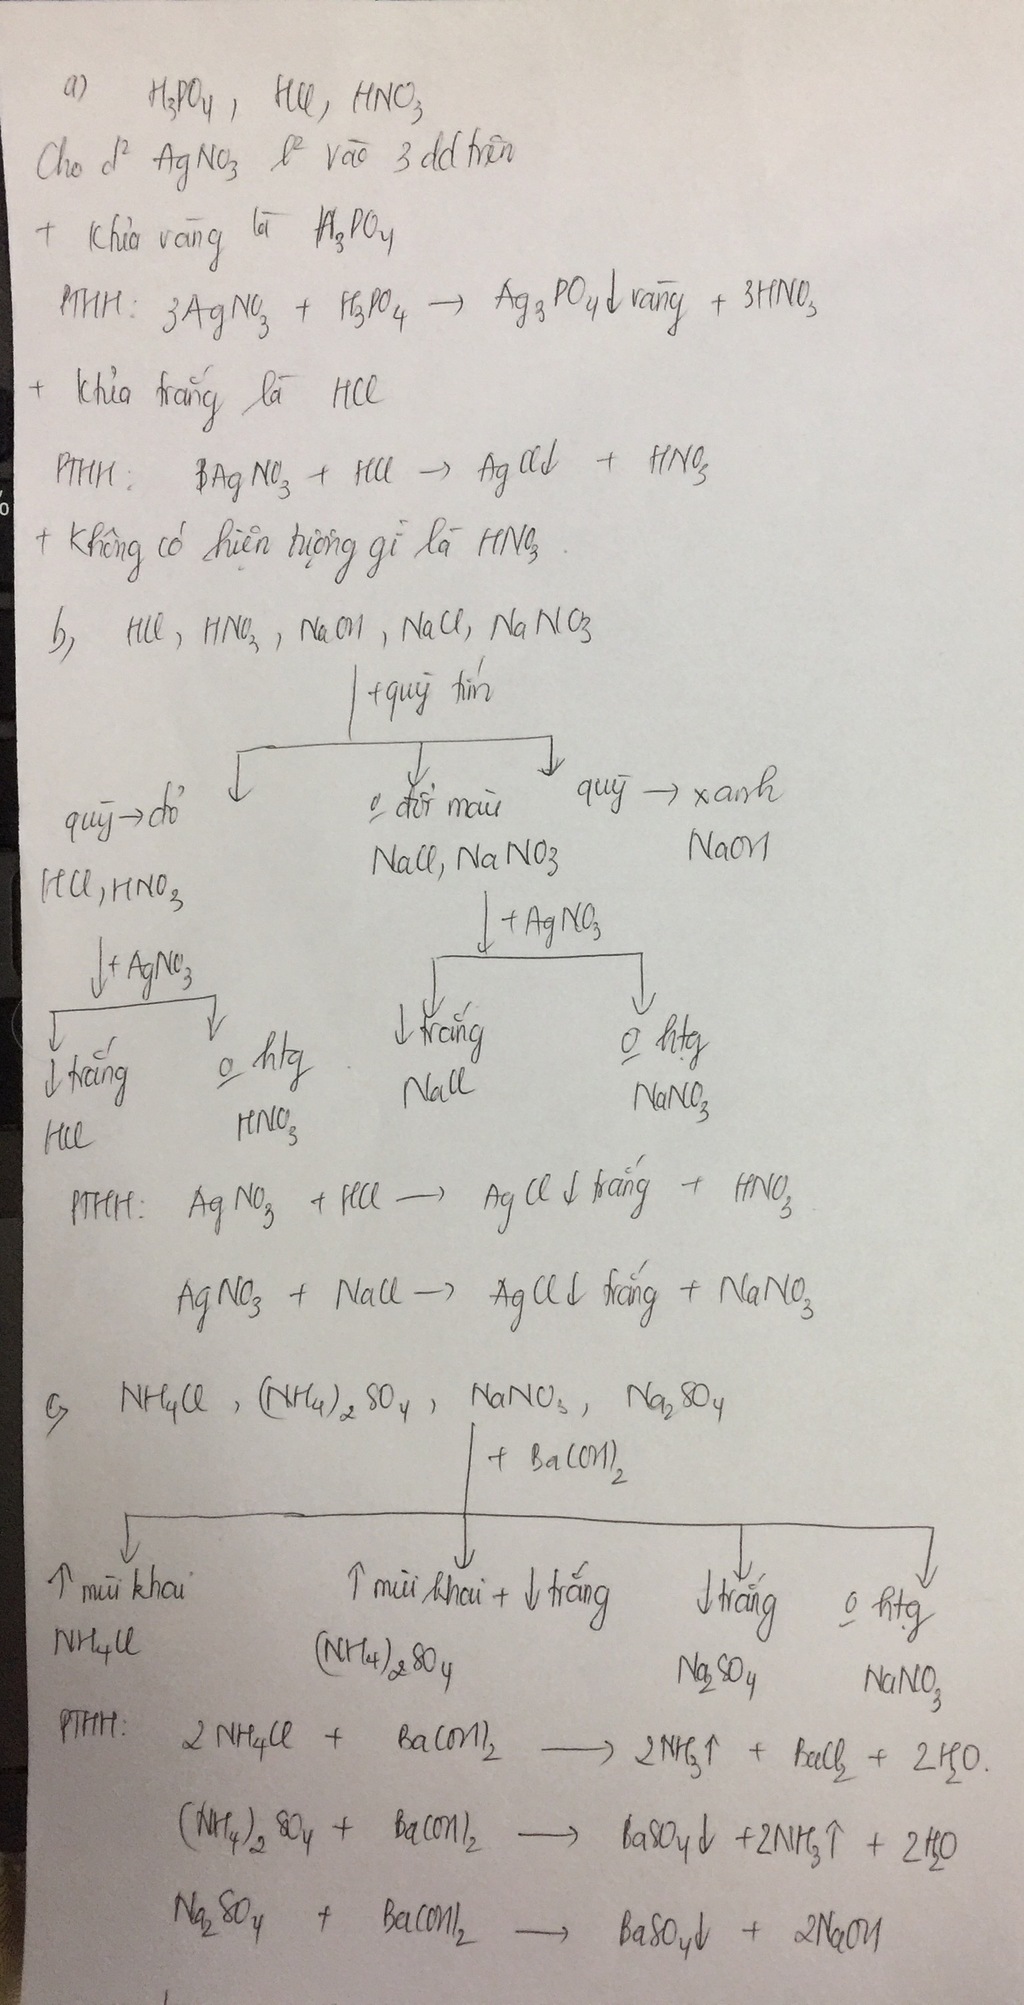 a) H₃PO₄, HCl, HNO₃
Cho d² AgNO₃ l² vào 3 dd trên
+ Khỉa vàng là H₃PO₄
PTHH: 3AgNO₃ + H₃PO₄ → Ag₃PO₄↓ vàng + 3HNO₃
+ Khỉa trắng là HCl
PTHH: AgNO₃ + HCl → AgCl↓ + HNO₃
+ Không có hiện tượng gì là HNO₃.
b, HCl, HNO₃, NaOH, NaCl, NaNO₃
+ quỳ tím
quỳ → đỏ o̲ đổi màu quỳ → xanh
HCl, HNO₃ NaCl, NaNO₃ NaOH
+ AgNO₃ + AgNO₃
↓ trắng o̲ htg ↓ trắng o̲ htg
HCl HNO₃ NaCl NaNO₃
PTHH: AgNO₃ + HCl → AgCl↓ trắng + HNO₃
AgNO₃ + NaCl → AgCl↓ trắng + NaNO₃
c, NH₄Cl, (NH₄)₂SO₄, NaNO₃, Na₂SO₄
+ Ba(OH)₂
↑ mùi khai ↑ mùi khai + ↓ trắng ↓ trắng o̲ htg
NH₄Cl (NH₄)₂SO₄ Na₂SO₄ NaNO₃
PTHH: 2NH₄Cl + Ba(OH)₂ → 2NH₃↑ + BaCl₂ + 2H₂O.
(NH₄)₂SO₄ + Ba(OH)₂ → BaSO₄↓ + 2NH₃↑ + 2H₂O
Na₂SO₄ + Ba(OH)₂ → BaSO₄↓ + 2NaOH